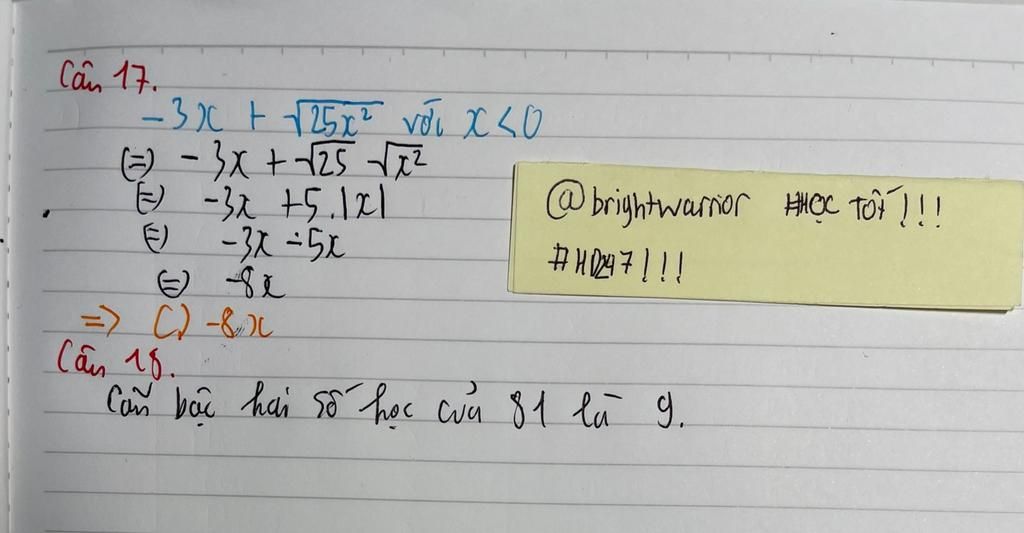 Câu 17.
-3x + √25x² với x<0
(=) -3x + √25 √x²
(=) -3x +5.|x|
(=) -3x -5x
(=) -8x
=> C) -8x
Câu 18.
Căn bậc hai số học của 81 là 9.
@brightwarrior #HỌC TỐT!!!
#HD247!!!